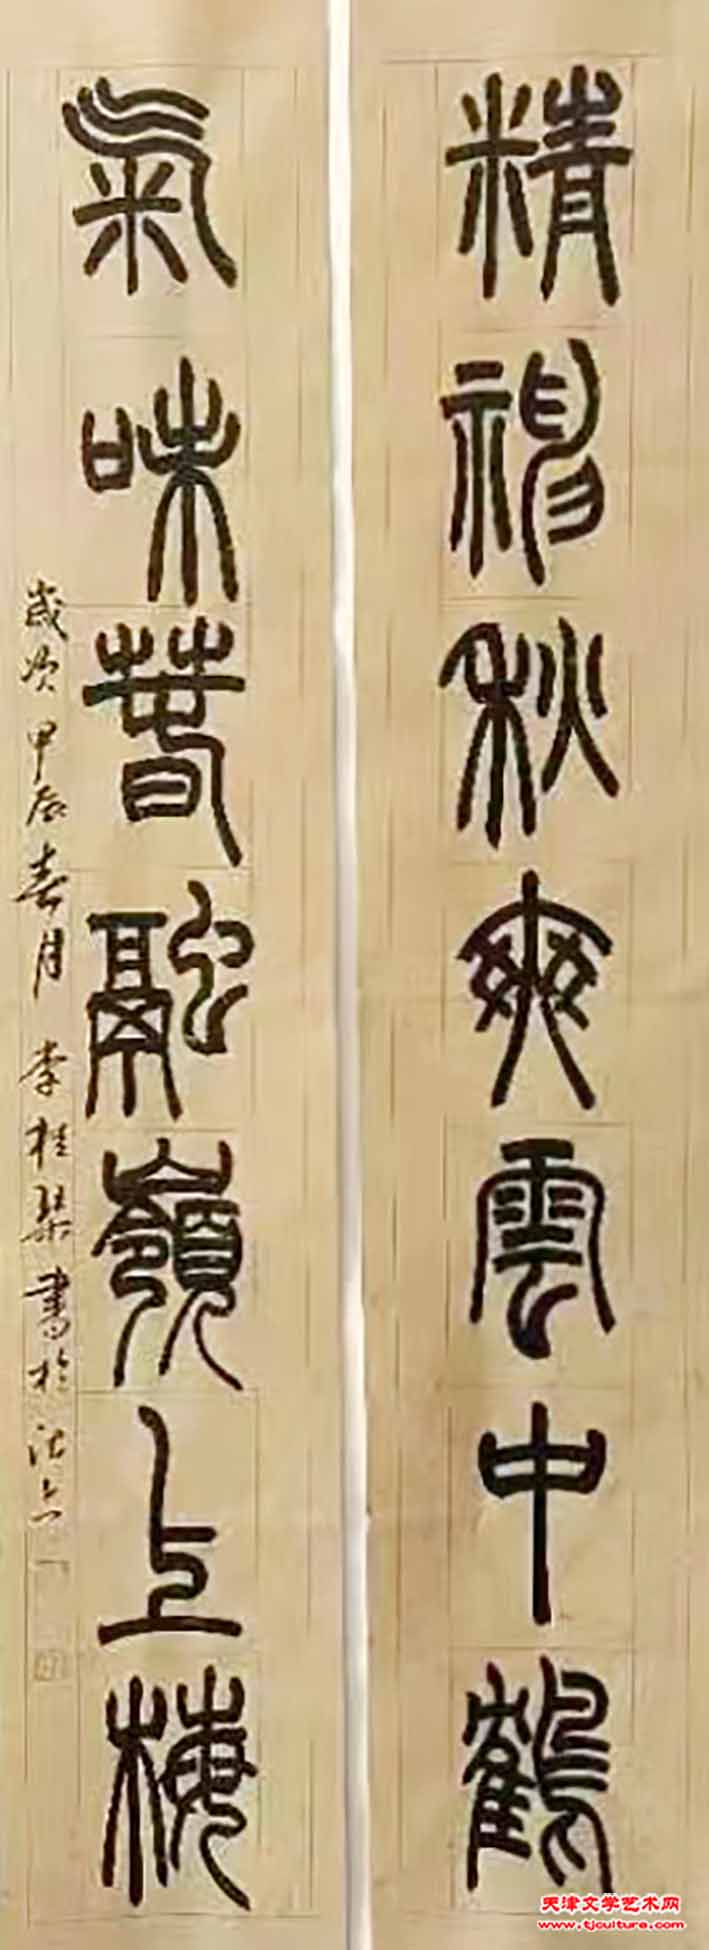 精神秋爽雲中鶴
氣味春融嶺上梅
歲次甲辰春月李桂琴書於沽上
天津文学艺术网
www.tjculture.com